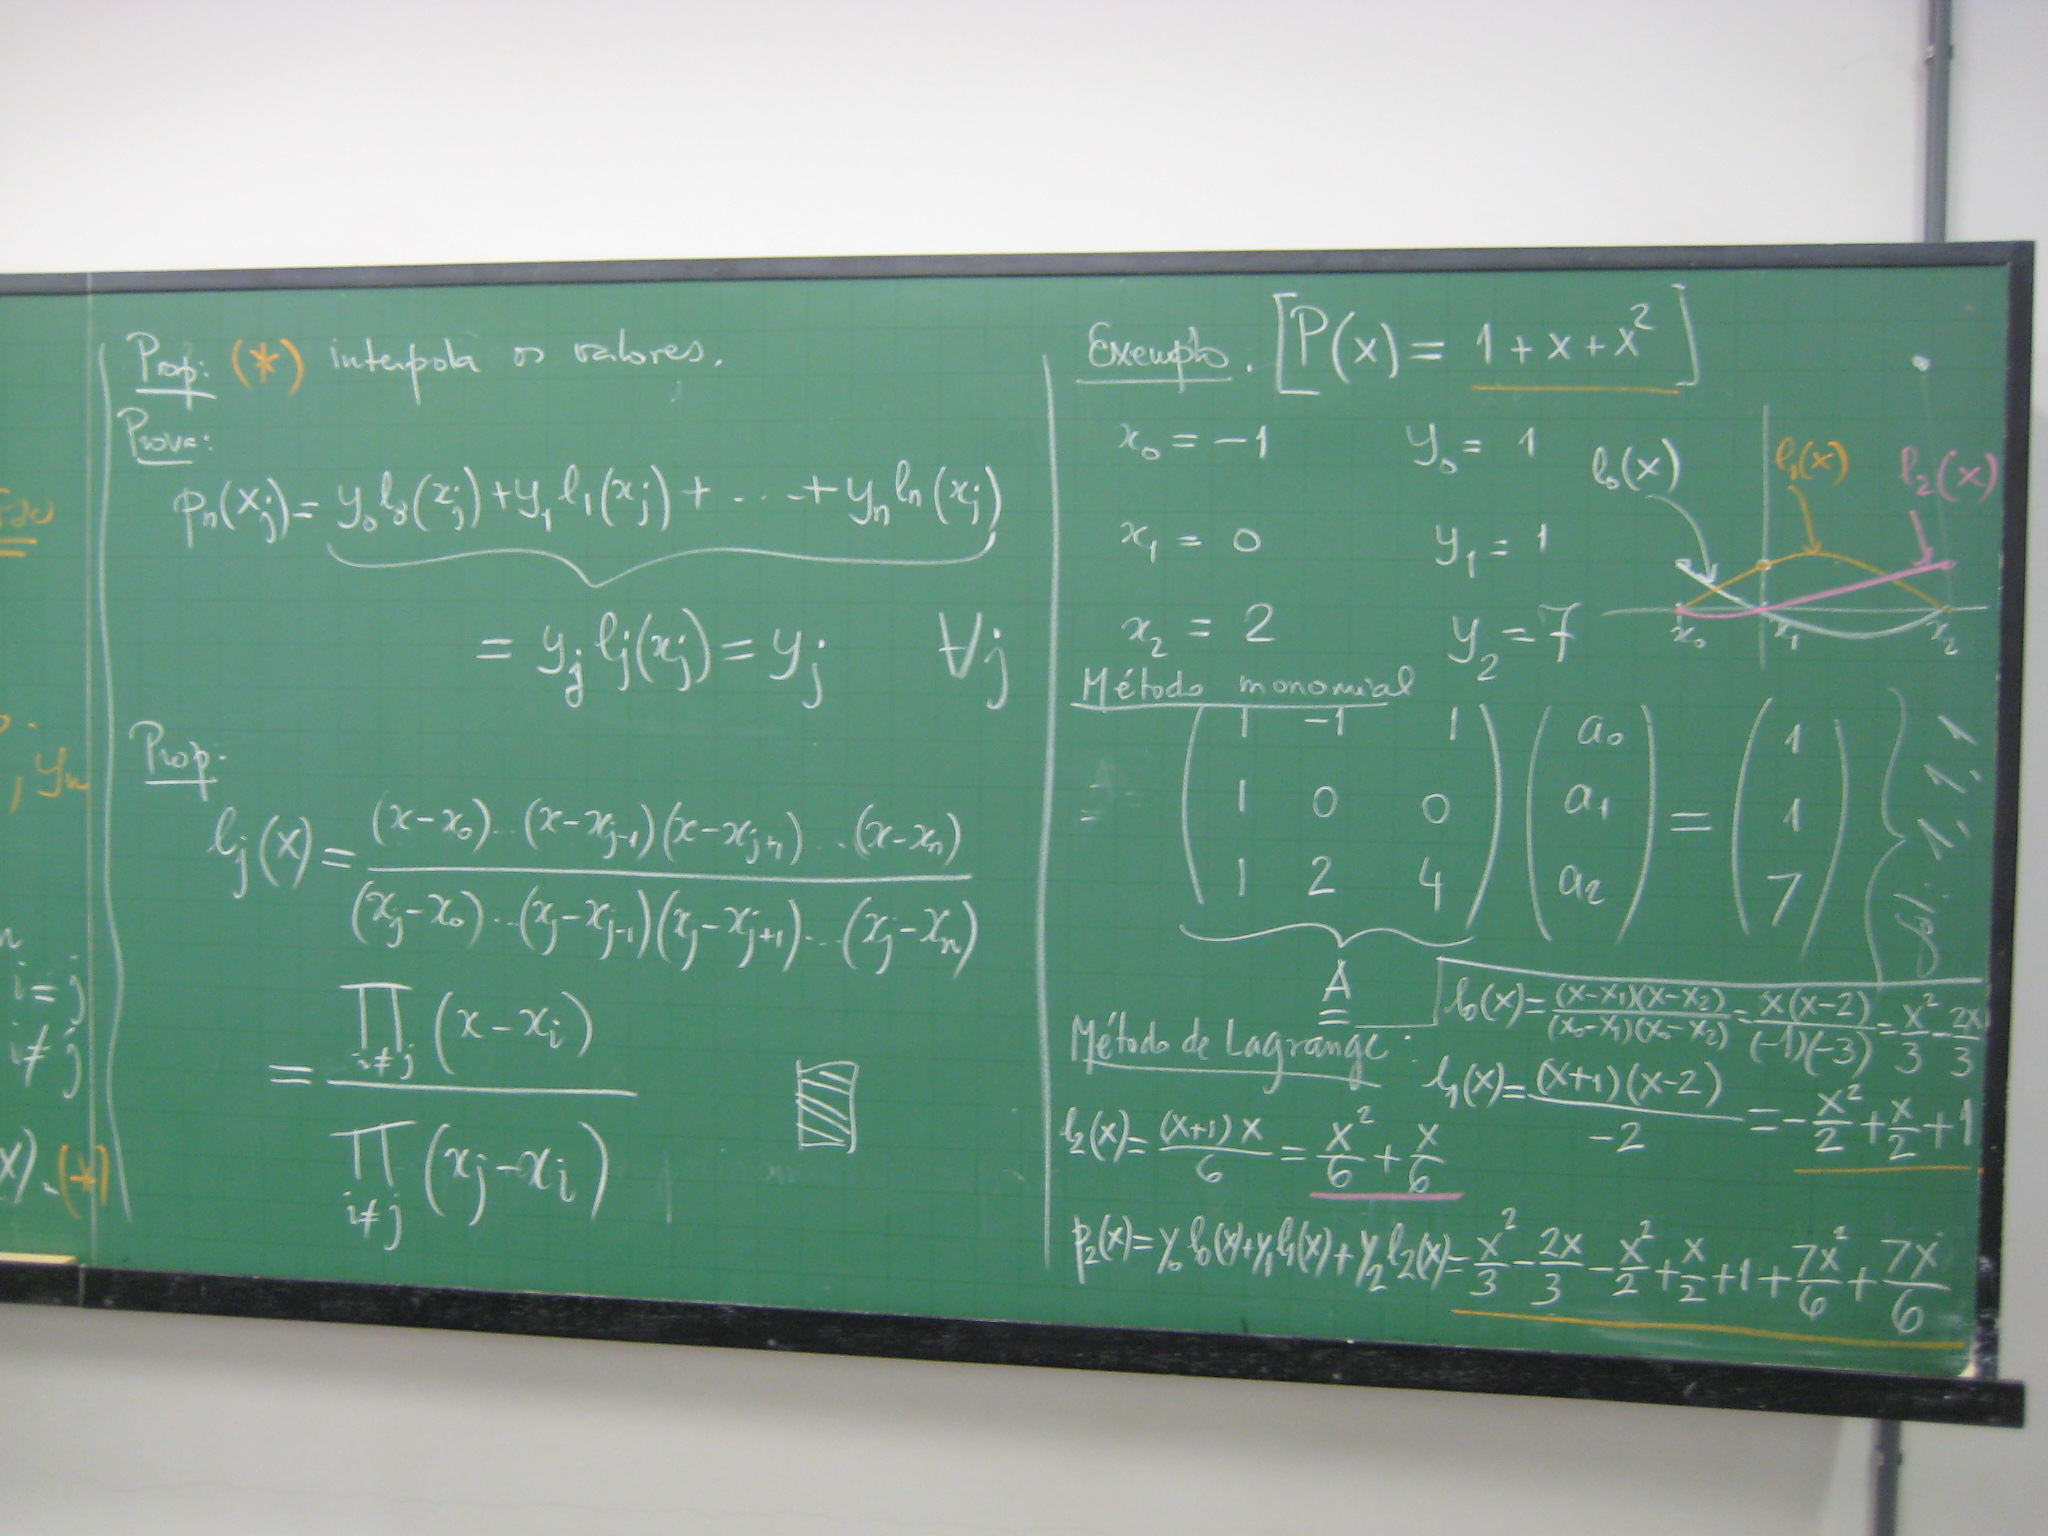 Prop: (*) interpola os valores.
Prova:
pₙ(xⱼ) = y₀ l₀(xⱼ) + y₁ l₁(xⱼ) + ... + yₙ lₙ(xⱼ)
= yⱼ lⱼ(xⱼ) = yⱼ ∀j
Prop.
lⱼ(x) = (x-x₀)...(x-xⱼ₋₁)(x-xⱼ₊₁)...(x-xₙ) / (xⱼ-x₀)...(xⱼ-xⱼ₋₁)(xⱼ-xⱼ₊₁)...(xⱼ-xₙ)
= ∏ i≠j (x-xᵢ) / ∏ i≠j (xⱼ-xᵢ)
, yₙ
i=j
i≠j
x). (*)
Exemplo. [P(x) = 1+x+x²]
x₀ = -1 y₀ = 1
x₁ = 0 y₁ = 1
x₂ = 2 y₂ = 7
l₀(x) l₁(x) l₂(x)
x₀ x₁ x₂
Método monomial
(1 -1 1) (a₀) (1)
(1 0 0) (a₁) = (1)
(1 2 4) (a₂) (7)
A
Sol: 1, 1, 1
Método de Lagrange:
l₀(x) = (x-x₁)(x-x₂) / (x₀-x₁)(x₀-x₂) = x(x-2) / (-1)(-3) = x²/3 - 2x/3
l₁(x) = (x+1)(x-2) / -2 = -x²/2 + x/2 + 1
l₂(x) = (x+1)x / 6 = x²/6 + x/6
p₂(x) = y₀ l₀(x) + y₁ l₁(x) + y₂ l₂(x) = x²/3 - 2x/3 - x²/2 + x/2 + 1 + 7x²/6 + 7x/6